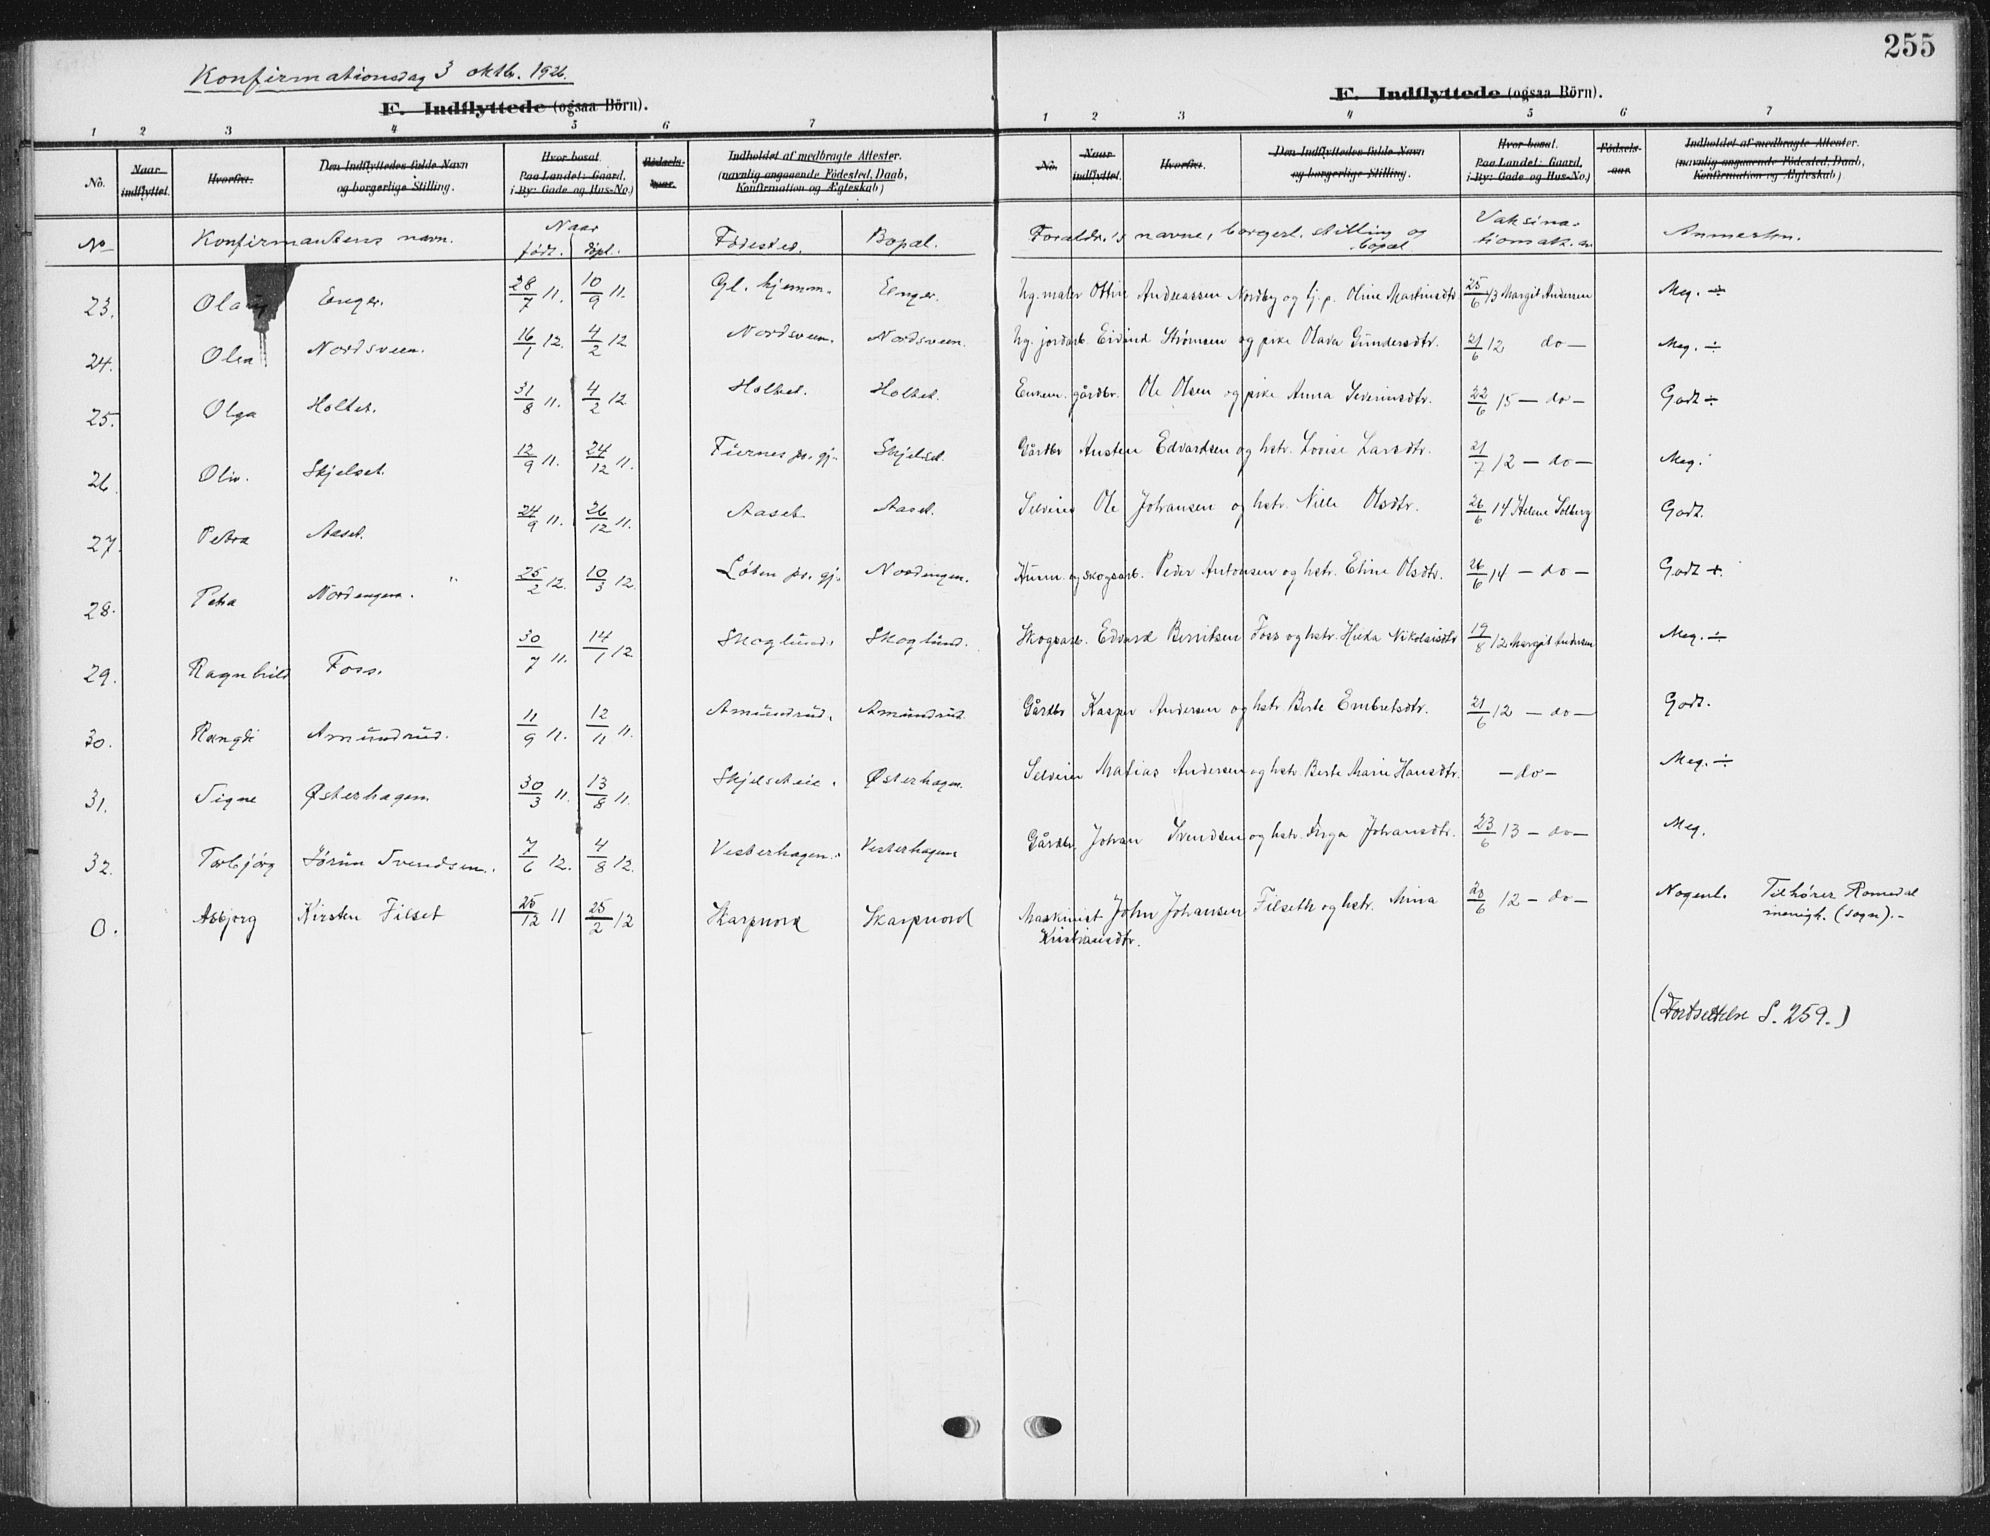 255
Konfirmationsdag 3 oktb. 1926.
F. Indflyttede (ogsaa Börn).
F. Indflyttede (ogsaa Börn).
1 2 3 4 5 6 7
1 2 3 4 5 6 7
No. Naar indflyttet. Hvorfra. Den Indflyttedes fulde Navn og borgerlige Stilling. Hvor bosat. Paa Landet: Gaard, i By: Gade og Hus-No.) Födsels-aar. Indholdet af medbragte Attester. (navnlig angaaende Födested, Daab, Konfirmation og Ægteskab)
No. Naar indflyttet. Hvorfra. Den Indflyttedes fulde Navn og borgerlige Stilling. Hvor bosat. Paa Landet: Gaard, i By: Gade og Hus-No.) Födsels-aar. Indholdet af medbragte Attester. (navnlig angaaende Födested, Daab, Konfirmation og Ægteskab)
No Konfirmantens navn. Naar født. döpt. Födested. Bopæl. Foraldr.'s navne, borgerl. stilling og bopæl Vaksinationsatt. Anmerkn.
23. Enger. 28/7 11. 10/9 11. Gl. hjemm. Enger. Ug. maler Ottin Andreassen Nordby og tj. p. Oline Martinsdtr. 25/6 13 Margit Andersen Meg. ÷
24. Olea Nordsveen. 16/1 12. 4/2 12 Nordsveen. Nordsveen. Ug. jordarb. Eivind Strømsen og pike Olava Gundersdtr. 21/6 12 do — Meg. ÷
25. Olga Holtet. 31/8 11. 4/2 12 Holtet. Holtet. Enkem. gårdbr. Ole Olsen og pike Anna Severinsdtr. 22/6 15 — do — Godt ÷
26. Oliv. Skjelset. 12/9 11. 24/12 11. Furnes pr. gj. Skjelset. Gårdbr Austen Edvardsen og hstr. Lovise Larsdtr. 21/7 12 — do — Meg.
27. Petra Aaset. 24/9 11. 26/12 11. Aaset. Aaset. Selveier Ole Johansen og hstr. Nille Olsdtr. 26/6 14 Helene Solberg Godt.
28. Petra Nordengen. 25/2 12. 10/3 12. Løten pr. gj. Nordengen. Husm. og skogsarb. Peder Antonsen og hstr. Eline Olsdtr. 26/6 14 — do — Godt +.
29. Ragnhild Foss. 30/7 11. 14/1 12 Skoglund. Skoglund. Skogsarb. Edvard Berntsen Foss og hstr. Hilda Nikolaisdtr 19/8 12 Margit Andersen Meg. ÷
30. Rangdi Amundrud. 11/9 11. 12/11 11. Amundrud. Amundrud. Gårdbr Kasper Andersen og hstr Berte Embretsdtr. 21/6 12 — do — Godt.
31. Signe Østerhagen. 30/3 11. 13/8 11. Skjelseteie. Østerhagen. Selveier Matias Andersen og hstr. Berte Marie Hansdtr. — do — Meg. ÷
32. Torbjörg Jörun Svendsen. 7/6 12. 4/8 12. Vesterhagen. Vesterhagen Gårdbr. Johan Svendsen og hstr. Inga Johansdtr. 23/6 13 — do — Meg.
0. Asbjørg Kirsten Filset 25/12 11 25/2 12 Skarpnord Skarpnord Maskinist John Johansen Filseth og hstr. Mina 6 12 — do — Nogenl. Tilhører Romedal
Kristiansdtr. menigh. (sogn).-
(Fortsettelse S. 259.)